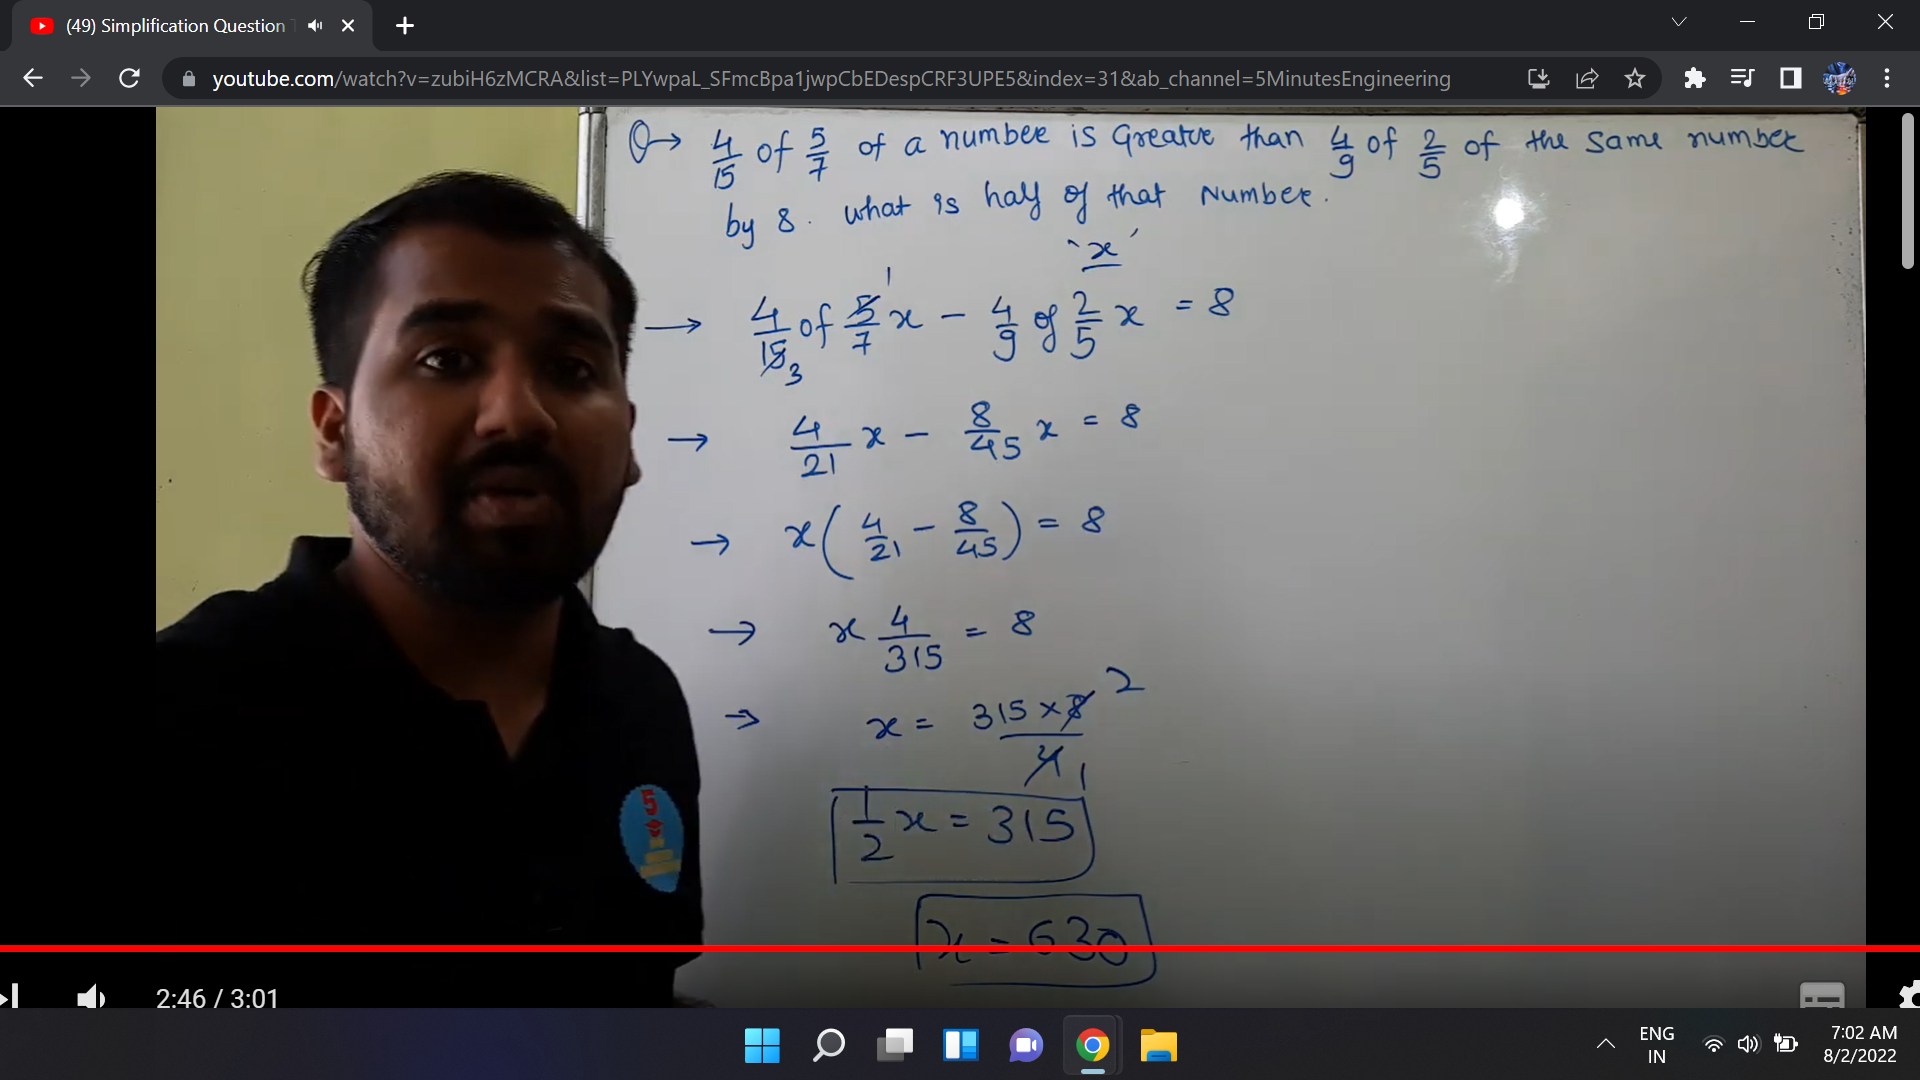 (49) Simplification Question
youtube.com/watch?v=zubiH6zMCRA&list=PLYwpaL_SFmcBpa1jwpCbEDespCRF3UPE5&index=31&ab_channel=5MinutesEngineering
Q→ 4/15 of 5/7 of a number is Greater than 4/9 of 2/5 of the same number
by 8. what is half of that Number.
'x'
→ 4/15 3 of 5/7 1 x - 4/9 of 2/5 x = 8
→ 4/21 x - 8/45 x = 8
→ x(4/21 - 8/45) = 8
→ x 4/315 = 8
⇒ x = 315 × 8/4 2 1
1/2 x = 315
x = 630
5
2:46 / 3:01
ENG
IN
7:02 AM
8/2/2022